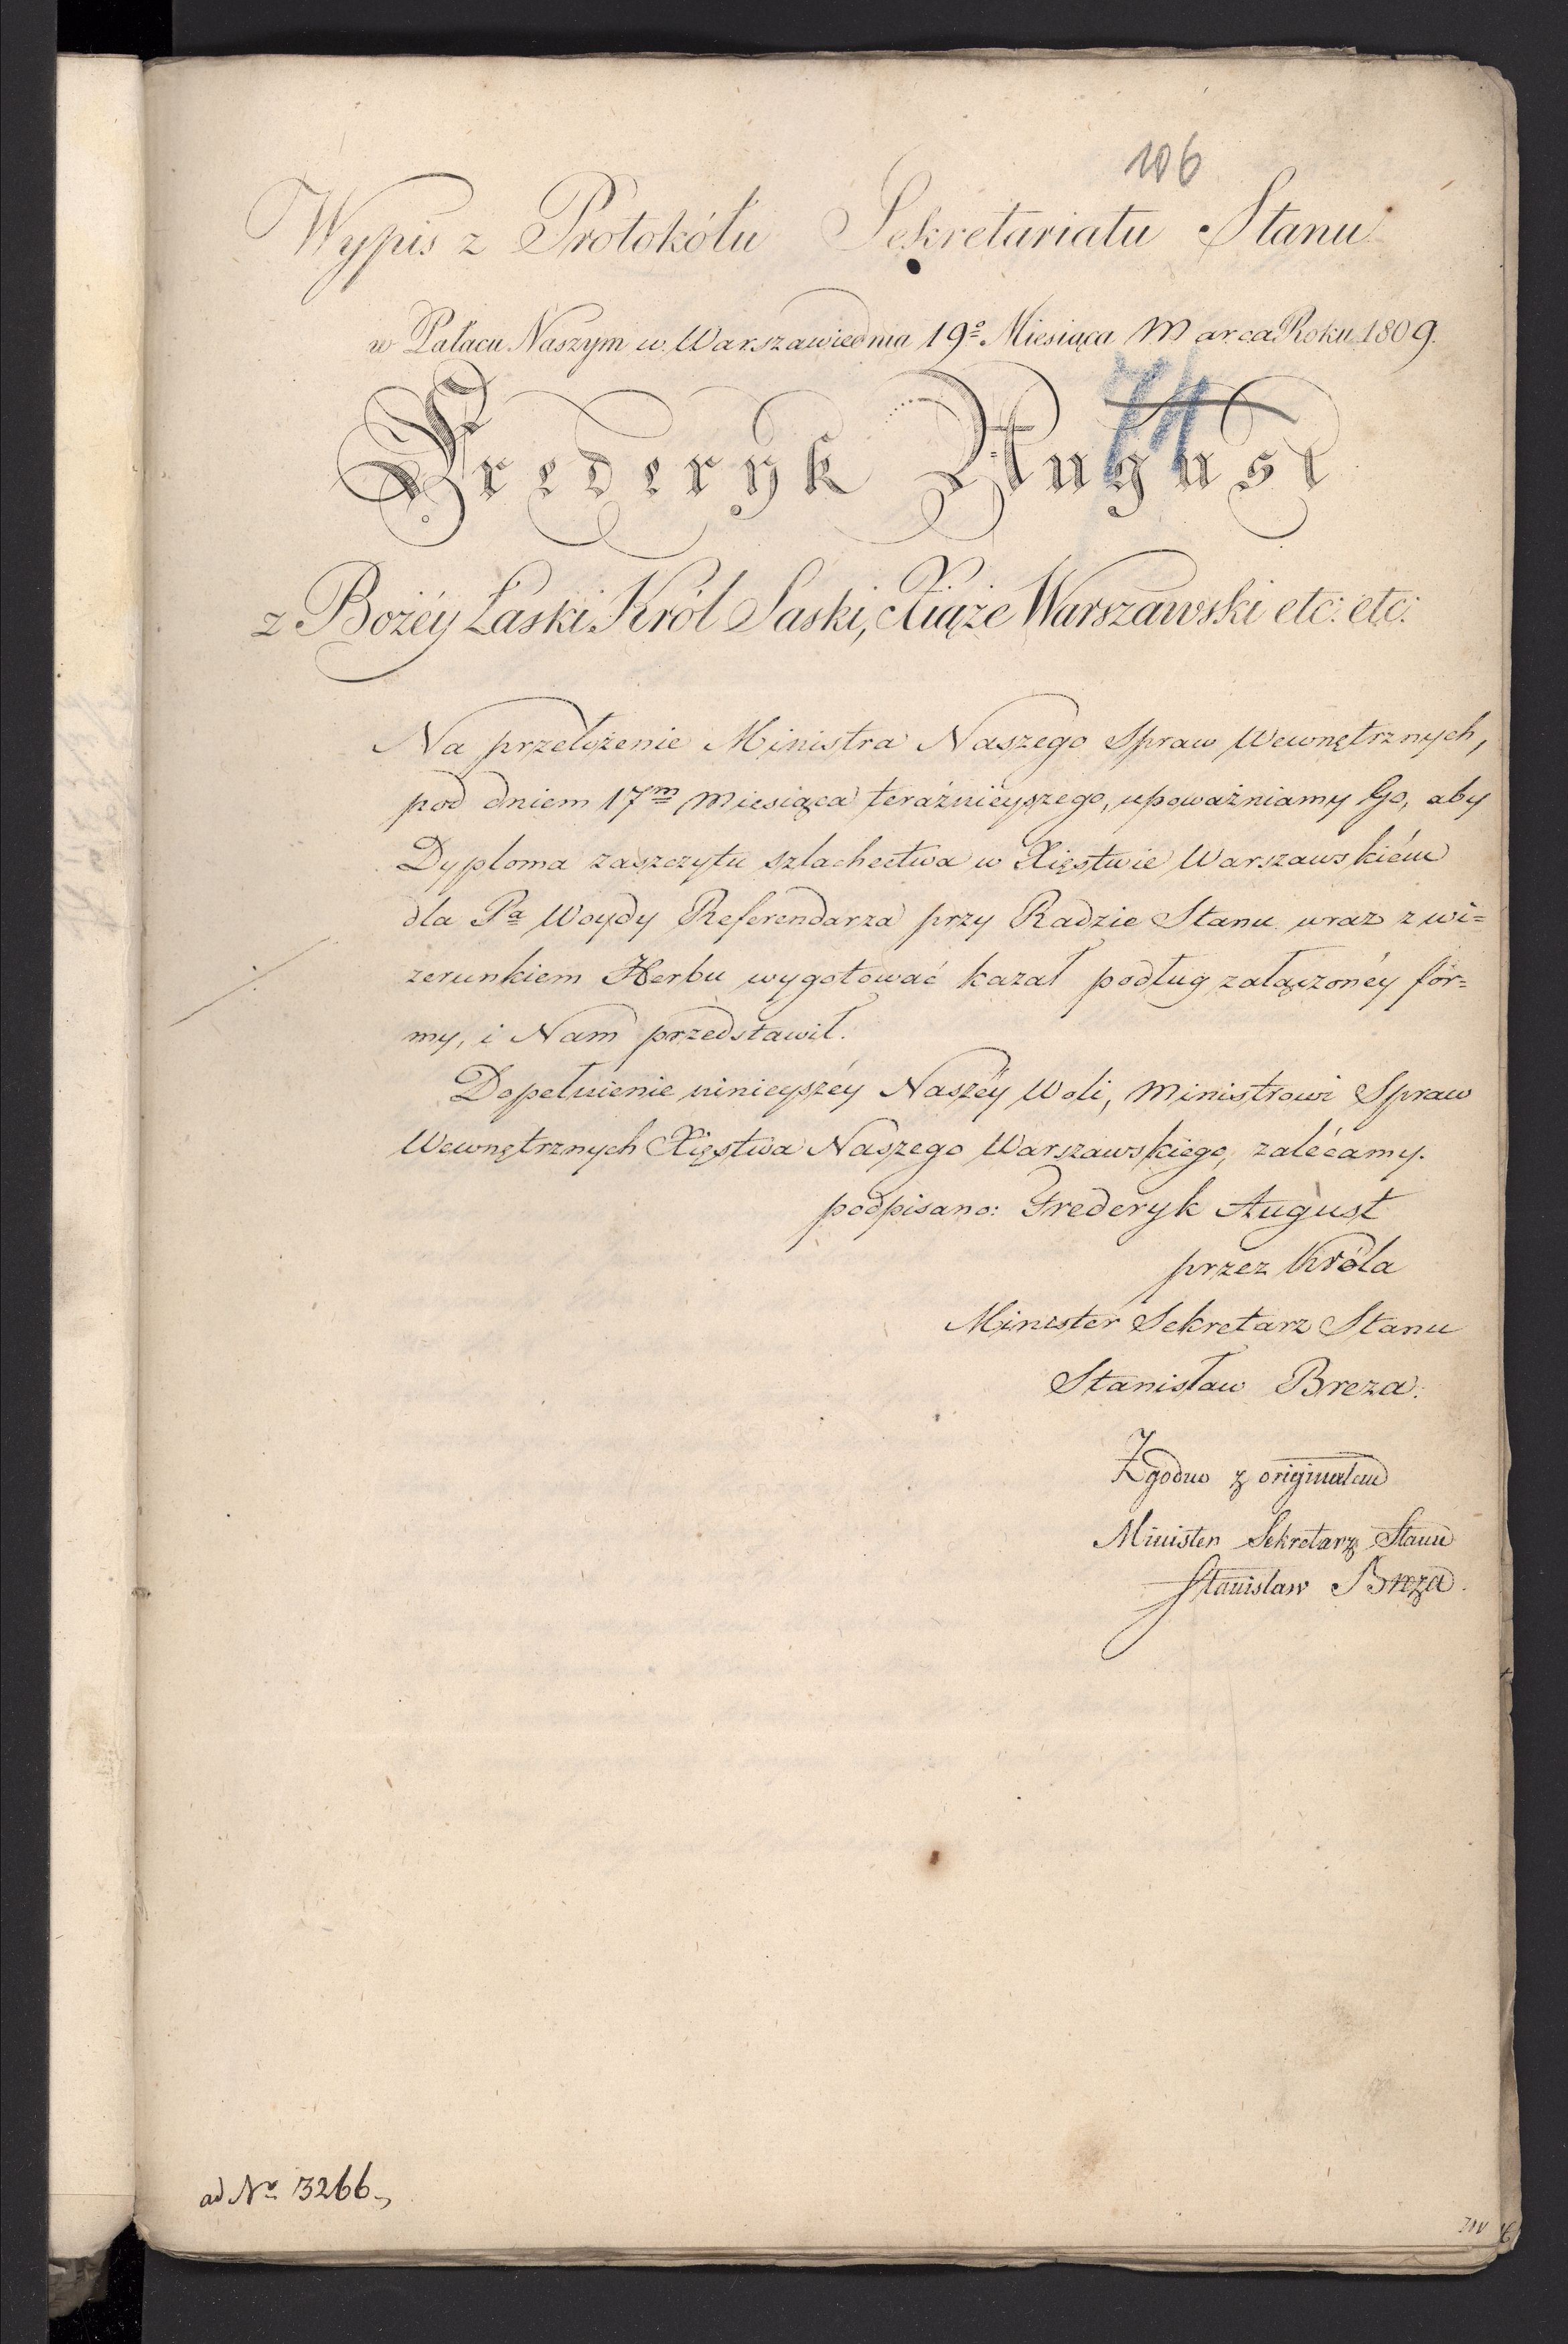 106
Wypis z Protokółu Sekretariatu Stanu
w Pałacu Naszym w Warszawie dnia 19º Miesiąca Marca Roku 1809.
74
Frederyk August
z Bożéy Łaski Król Saski, Xiąże Warszawski etc: etc:
Na przełożenie Ministra Naszego Spraw Wewnętrznych,
pod dniem 17m Miesiąca teraźnieyszego, upoważniamy Go, aby
Dyploma zaszczytu szlachectwa w Xięstwie Warszawskiém
dla Pa Woydy Referendarza przy Radzie Stanu wraz z wi=
zerunkiem Herbu wygotować kazał podług załączonéy for=
my, i Nam przedstawił.
Dopełnienie ninieyszéy Naszéy Woli, Ministrowi Spraw
Wewnętrznych Xięstwa Naszego Warszawskiego, zalécamy.
podpisano: Frederyk August
przez Króla
Minister Sekretarz Stanu
Stanisław Breza.
Zgodno z originałem
Minister Sekretarz Stanu
Stanisław Breza.
ad Nro 3266.